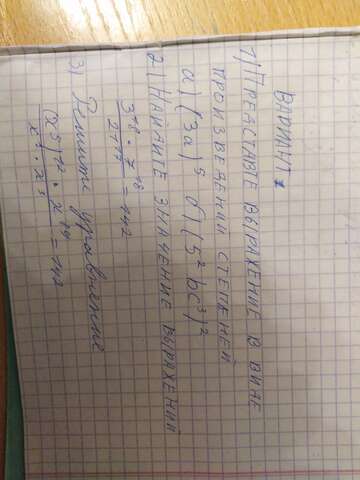 ВАРИАНТ 1.
1) ПРЕДСТАВТЕ ВЫРАЖЕНИЕ В ВИДЕ
ПРОИЗВЕДЕНИЙ СТЕПЕНЕЙ
а) (3a)⁵ б) (5²bc³)²
2) НАЙДИТЕ ЗНАЧЕНИЕ ВЫРАЖЕНИЙ
3¹⁸ · 7¹⁸
= 142
21¹⁷
3) Решите уравнение
= 142